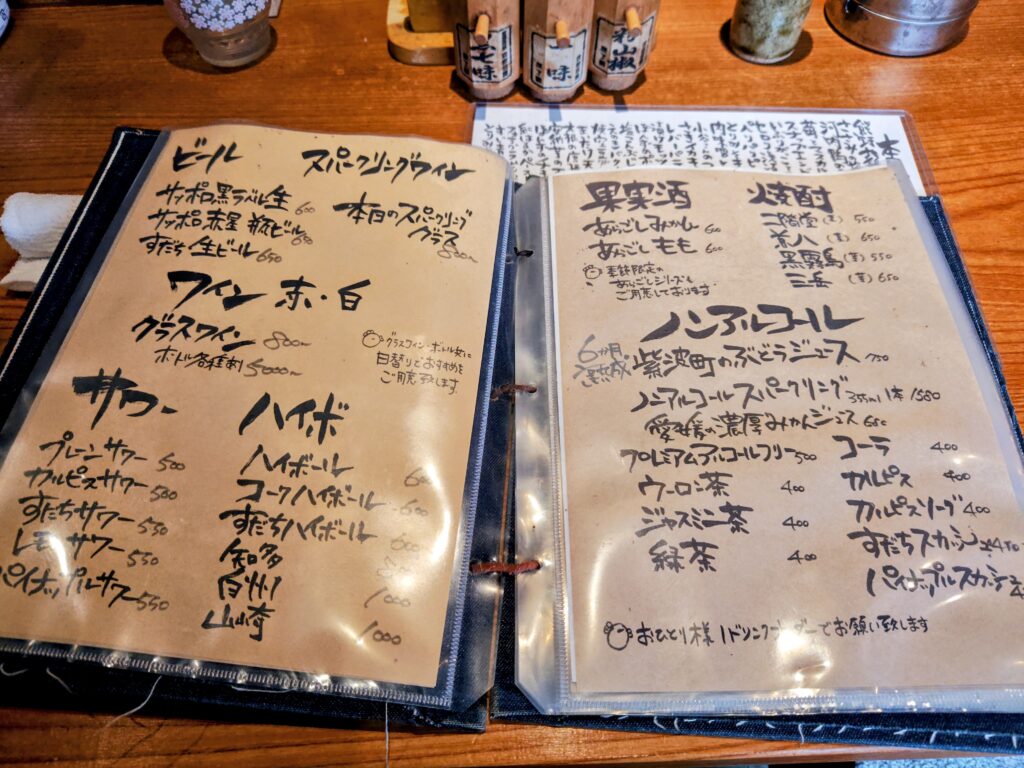 ビール
サッポロ黒ラベル生 600
サッポロ赤星 瓶ビール 650
すだち生ビール 650
スパークリングワイン
本日のスパークリング
グラス 800〜
ワイン 赤・白
グラスワイン 800〜
ボトル各種 5000〜
グラスワイン、ボトル共に
日替りでおすすめを
ご用意致します。
サワー
プレーンサワー 500
カルピスサワー 550
すだちサワー 550
レモンサワー 550
パイナップルサワー 550
ハイボ
ハイボール 600
コークハイボール 600
すだちハイボール 600
知多
白州 1000
山崎 1000
果実酒
あらごしみかん 600
あらごしもも 600
季節限定の
あらごしシリーズも
ご用意しております
焼酎
二階堂 (麦) 550
茶八 650
黒霧島 (芋) 550
三岳 (芋) 650
ノンアルコール
6ヶ月熟成 紫波町のぶどうジュース 750
ノンアルコールスパークリング 355ml 1本 1580
愛媛の濃厚みかんジュース 650
プレミアムアルコールフリー 500
ウーロン茶 400
ジャスミン茶 400
緑茶 400
コーラ 400
カルピス 400
カルピスソーダ 400
すだちスカッシュ 450
パイナップルスカッシュ
おひとり様1ドリンクオーダーでお願い致します
七味
一味
粉山椒